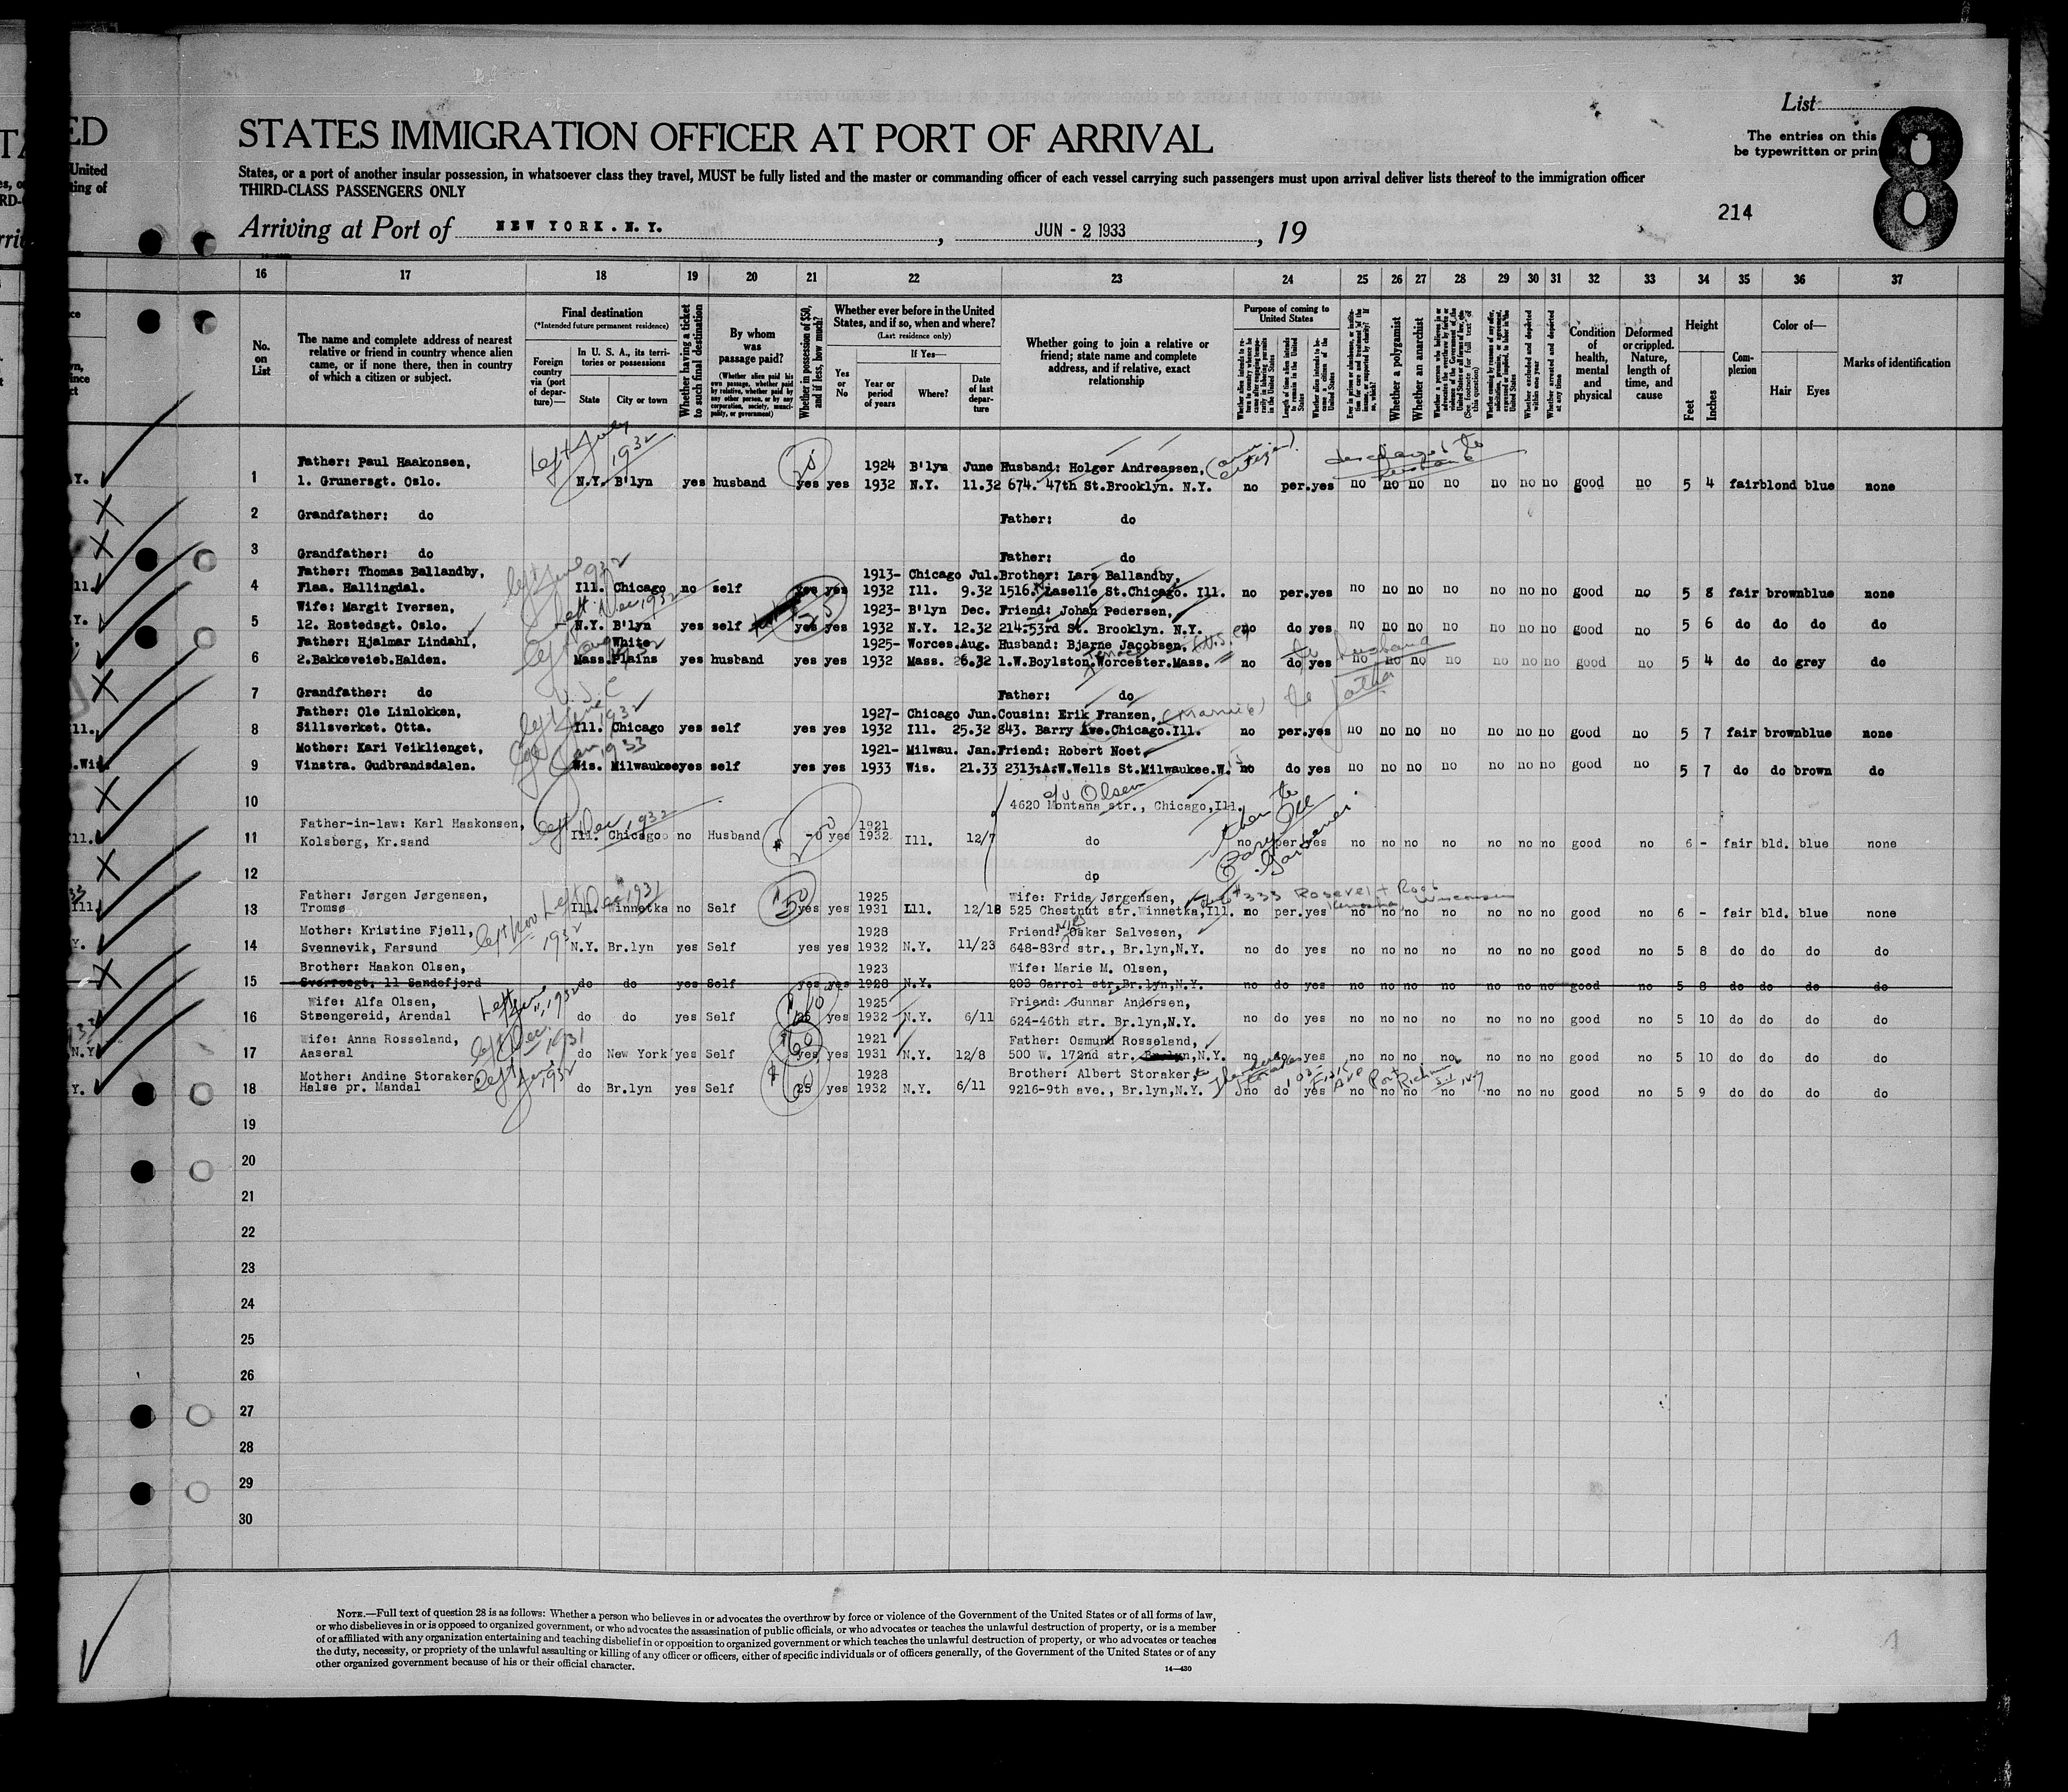 List
The entries on this
be typewritten or prin
8
STATES IMMIGRATION OFFICER AT PORT OF ARRIVAL
States, or a port of another insular possession, in whatsoever class they travel, MUST be fully listed and the master or commanding officer of each vessel carrying such passengers must upon arrival deliver lists thereof to the immigration officer
THIRD-CLASS PASSENGERS ONLY
214
Arriving at Port of NEW YORK. N.Y. , JUN - 2 1933 , 19
16 17 18 19 20 21 22 23 24 25 26 27 28 29 30 31 32 33 34 35 36 37
No. on List
The name and complete address of nearest relative or friend in country whence alien came, or if none there, then in country of which a citizen or subject.
Final destination
(*Intended future permanent residence)
Foreign country via (port of departure)—
In U. S. A., its territories or possessions
State City or town
Whether having a ticket to such final destination
By whom was passage paid?
(Whether alien paid his own passage, whether paid by relative, whether paid by any other person, or by any corporation, society, municipality, or government)
Whether in possession of $50, and if less, how much?
Whether ever before in the United States, and if so, when and where?
(Last residence only)
Yes or No
If Yes—
Year or period of years Where? Date of last departure
Whether going to join a relative or friend; state name and complete address, and if relative, exact relationship
Purpose of coming to United States
Length of time alien intends to remain in the United States
Whether alien intends to become a citizen of the United States
Whether a polygamist
Whether an anarchist
Whether excluded and deported within one year
Whether arrested and deported at any time
Condition of health, mental and physical
Deformed or crippled. Nature, length of time, and cause
Height
Feet Inches
Complexion
Color of—
Hair Eyes
Marks of identification
Left July 1932
Father: Paul Haakonsen, 1924 B'lyn June Husband: Holger Andreassen,
1 1. Grunersgt. Oslo. N.Y. B'lyn yes husband yes yes 1932 N.Y. 11.32 674. 47th St.Brooklyn. N.Y. no per.yes no no no no no no no good no 5 4 fair blond blue none
2 Grandfather: do Father: do
3 Grandfather: do Father: do
left June 1932
Father: Thomas Ballandby, 1913- Chicago Jul.Brother: Lars Ballandby,
4 Flaa. Hallingdal. Ill. Chicago no self yes yes 1932 Ill. 9.32 1516. Laselle St.Chicago. Ill. no per.yes no no no no no no no good no 5 8 fair brown blue none
left Dec, 1932
Wife: Margit Iversen, 1923- B'lyn Dec. Friend: Johan Pedersen,
5 12. Rostedsgt. Oslo. N.Y. B'lyn yes self yes yes 1932 N.Y. 12.32 214.53rd St. Brooklyn. N.Y. no do yes no no no no no no no good no 5 6 do do do do
Father: Hjalmar Lindahl, White 1925- Worces.Aug. Husband: Bjarne Jacobsen,
6 2.Bakkeveieb.Halden. Mass.Plains yes husband yes yes 1932 Mass. 26.32 1.W.Boylston.Worcester.Mass. no do yes no no no no no no no good no 5 4 do do grey do
to husband
7 Grandfather: do Father: do
to father
left June 1932
Father: Ole Linlokken, 1927- Chicago Jun.Cousin: Erik Franzen,
8 Sillsverket. Otta. Ill. Chicago yes self yes yes 1932 Ill. 25.32 843. Barry Ave.Chicago.Ill. no per.yes no no no no no no no good no 5 7 fair brown blue none
Jan, 1933
Mother: Kari Veiklienget, 1921- Milwau. Jan.Friend: Robert Noet,
9 Vinstra. Gudbrandsdalen. Wis. Milwaukee yes self yes yes 1933 Wis. 21.33 2313.A.W.Wells St.Milwaukee.W. no do yes no no no no no no no good no 5 7 do do brown do
c/o Olsen
10 4620 Montana str., Chicago,Ill.
left Dec, 1932
Father-in-law: Karl Haakonsen, 1921
11 Kolsberg, Kr.sand Ill. Chicago no Husband yes 1932 Ill. 12/7 do no per yes no no no no no no no good no 6 - fair bld. blue none
12 dp
left Dec 1931
Father: Jørgen Jørgensen, $50 1925 Wife: Frida Jørgensen,
13 Tromsø Ill. Winnetka no Self yes yes 1931 Ill. 12/18 525 Chestnut str.Winnetka,Ill. no per.yes no no no no no no no good no 6 - fair bld. blue none
#333 Rosevelt Road Kenosha, Wisconsin
left Nov 1932
Mother: Kristine Fjell, 1928 Friend: Oskar Salvesen,
14 Svennevik, Farsund N.Y. Br.lyn yes Self yes yes 1932 N.Y. 11/23 648-83rd str., Br.lyn,N.Y. no do yes no no no no no no no good no 5 8 do do do do
Brother: Haakon Olsen, 1923 Wife: Marie M. Olsen,
15 Sverresgt. 11 Sandefjord do do yes Self yes yes 1928 N.Y. 203 Carrol str.Br.lyn,N.Y. no do yes no no no no no no no good no 5 8 do do do do
Left June 11, 1932
Wife: Alfa Olsen, 1925 Friend: Gunnar Andersen,
16 Støengereid, Arendal do do yes Self 25 yes 1932 N.Y. 6/11 624-46th str. Br.lyn,N.Y. no do yes no no no no no no no good no 5 10 do do do do
left Dec. 1931
Wife: Anna Rosseland, 60 1921 Father: Osmund Rosseland,
17 Aaseral do New York yes Self yes yes 1931 N.Y. 12/8 500 W. 172nd str. N.Y. no do yes no no no no no no no good no 5 10 do do do do
left June, 1932
Mother: Andine Storaker, 1928 Brother: Albert Storaker,
18 Halse pr. Mandal do Br.lyn yes Self 25 yes 1932 N.Y. 6/11 9216-9th ave., Br.lyn,N.Y. no do yes no no no no no no no good no 5 9 do do do do
19
20
21
22
23
24
25
26
27
28
29
30
NOTE.—Full text of question 28 is as follows: Whether a person who believes in or advocates the overthrow by force or violence of the Government of the United States or of all forms of law,
or who disbelieves in or is opposed to organized government, or who advocates the assassination of public officials, or who advocates or teaches the unlawful destruction of property, or is a member
of or affiliated with any organization entertaining and teaching disbelief in or opposition to organized government or which teaches the unlawful destruction of property, or who advocates or teaches
the duty, necessity, or propriety of the unlawful assaulting or killing of any officer or officers, either of specific individuals or of officers generally, of the Government of the United States or of any
other organized government because of his or their official character.
14—430